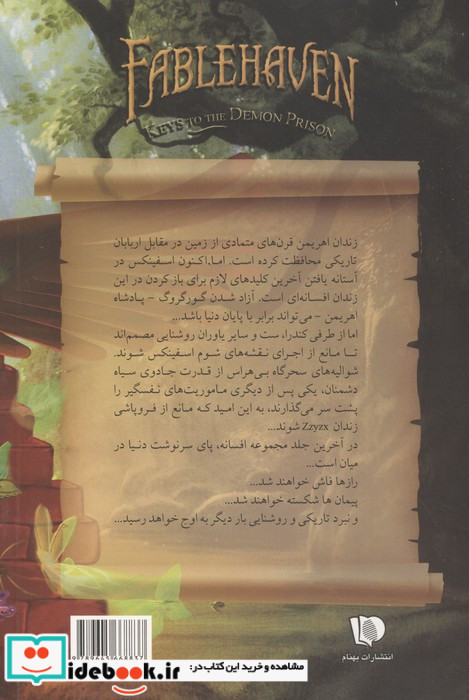 FABLEHAVEN
KEYS TO THE DEMON PRISON
زندان اهریمن قرن‌های متمادی از زمین در مقابل اربابان
تاریکی محافظت کرده است. اما.اکنون اسفینکس در
آستانه یافتن آخرین کلیدهای لازم برای باز کردن در این
زندان افسانه‌ای است. آزاد شدن گورگروگ - پادشاه
اهریمن - می‌تواند برابر با پایان دنیا باشد...
اما از طرفی کندرا، ست و سایر یاوران روشنایی مصمم‌اند
تا مانع از اجرای نقشه‌های شوم اسفینکس شوند.
شوالیه‌های سحرگاه بی‌هراس از قدرت جادوی سیاه
دشمنان، یکی پس از دیگری ماموریت‌های نفسگیر را
پشت سر می‌گذارند، به این امید که مانع از فروپاشی
زندان Zzyzx شوند...
در آخرین جلد مجموعه افسانه، پای سرنوشت دنیا در
میان است...
رازها فاش خواهند شد...
پیمان ها شکسته خواهند شد...
و نبرد تاریکی و روشنایی بار دیگر به اوج خواهد رسید...
انتشارات بهنام
مشاهده و خرید این کتاب در:
idebook.ir